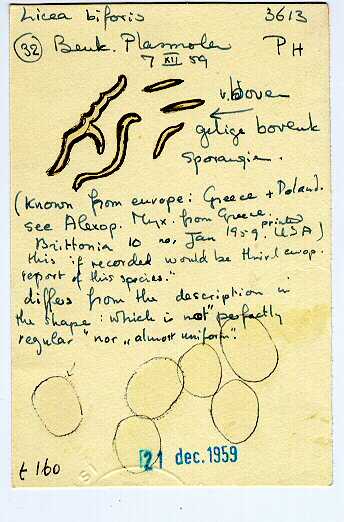 Licea biforis 3613
(32) Benk. Plasmolen PH
7 XII 59
v. boven
gelige bovenk
sporangien.
(Known from europe: Greece + Poland.
see Alexop. Myx. from Greece
Brittonia 10 no, Jan 1959 printed USA)
this if recorded would be third europ.
report of this species."
differs from the description in
the shape: which is not "perfectly
regular" nor "almost uniform".
t 160
21 dec. 1959